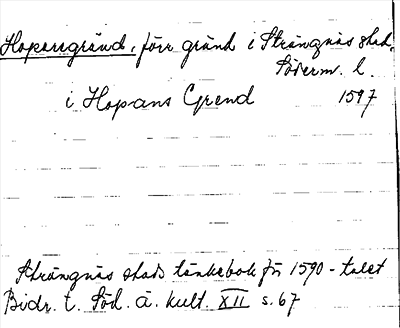 Hopansgränd, förr gränd i Strängnäs stad,
Söderm. l.
i Hopans Grend 1597
Strängnäs stads tänkebok för 1590-talet
Bidr. t. Söd. ä. kult. XII s. 67